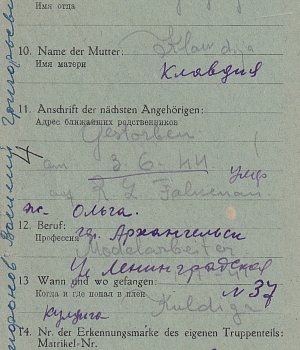 Имя отца
10. Name der Mutter: Klawdija
Имя матери Клавдия
11. Anschrift der nächsten Angehörigen:
Адрес ближайших родственников
Gestorben
4
am 3.-6.-44 умер
ж. Ольга.
12. Beruf: гор. Архангельск
Профессия Modelarbeiter
Ленинградская
13 Wann und wo gefangen: N 37
Когда и где попал в плен
Кулдига Kuldiga
14. Nr. der Erkennungsmarke des eigenen Truppenteils:
Matrikel-Nr.
Василий Григорьевич